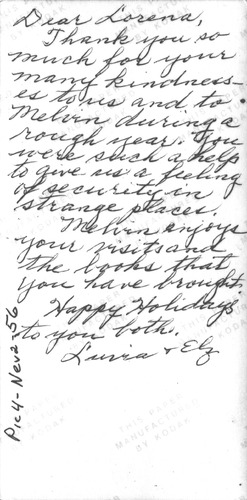 Dear Lorena,
Thank you so
much for your
many kindness-
es to us and to
Melvin during a
rough year. You
were such a help
to give us a feeling
of security in
strange places.
Melvin enjoys
your visits and
the books that
you have brought.
Happy Holidays
to you both.
Luvia + Elz
Pic 4 - Neva 256
THIS PAPER
MANUFACTURED
BY KODAK